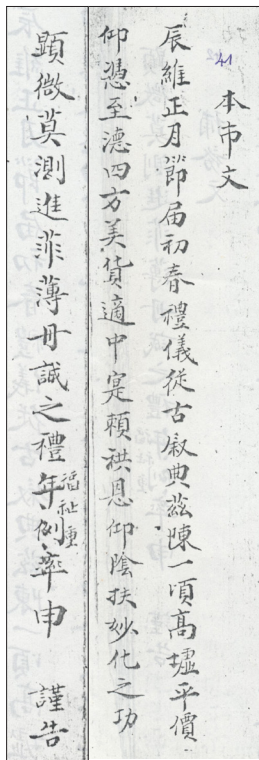 41
本市文
辰維正月節届初春禮儀從古叙典茲陳一頃高墟平價
仰憑至德四方美貨適中寔頼洪恩仰陰扶妙化之功
顕微莫測進菲薄毋誠之禮年例率申 謹告
福祉重